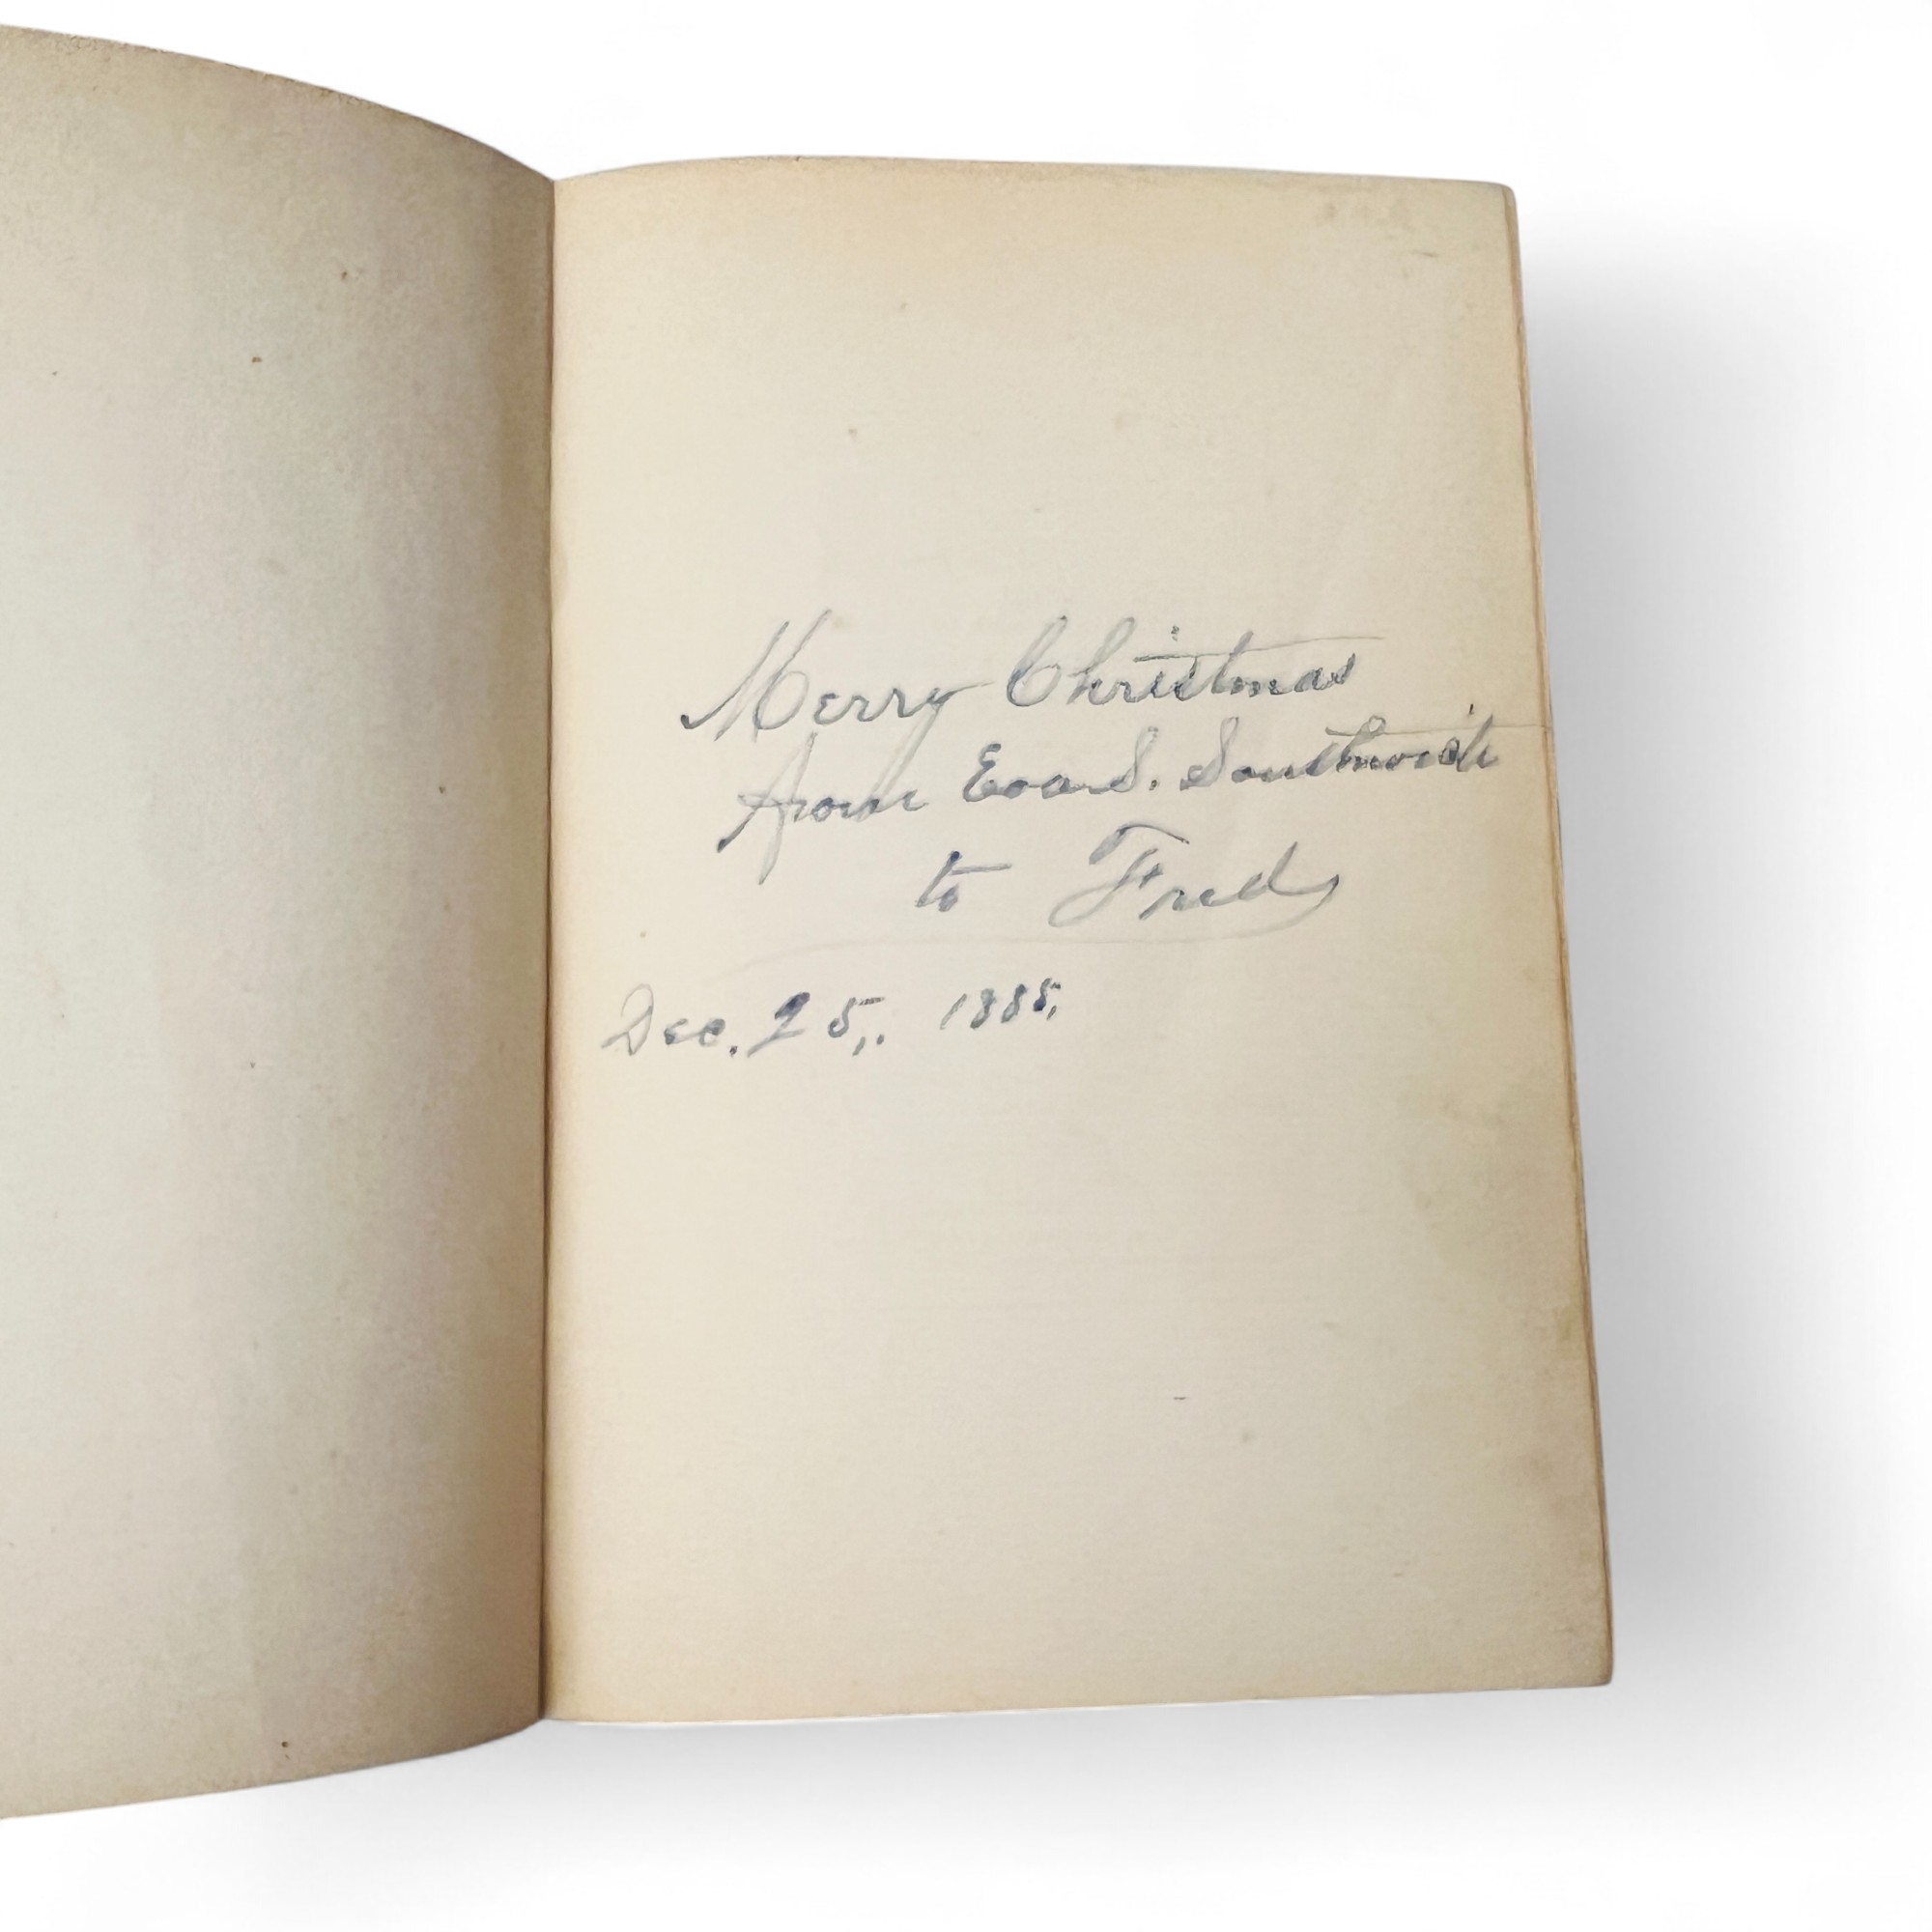 Merry Christmas
from Eva S. Southwick
to Fred
Dec. 25,. 1885,